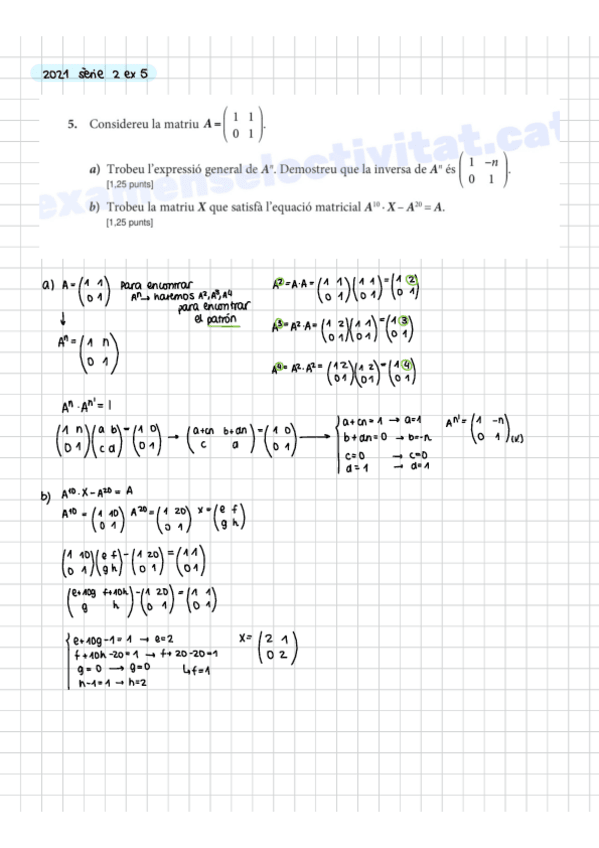 2021 sèrie 2 ex 5
examenselectivitat.cat
5. Considereu la matriu A = (1 1
0 1).
a) Trobeu l'expressió general de Aⁿ. Demostreu que la inversa de Aⁿ és (1 −n
0 1).
[1,25 punts]
b) Trobeu la matriu X que satisfà l'equació matricial A¹⁰ · X − A²⁰ = A.
[1,25 punts]
a) A = (1 1
0 1)
Para encontrar
Aⁿ → haremos A², A³, A⁴
para encontrar
el patrón
A² = A·A = (1 1
0 1)(1 1
0 1) = (1 2
0 1)
A³ = A²·A = (1 2
0 1)(1 1
0 1) = (1 3
0 1)
A⁴ = A²·A² = (1 2
0 1)(1 2
0 1) = (1 4
0 1)
↓
Aⁿ = (1 n
0 1)
Aⁿ · Aⁿ' = I
(1 n
0 1)(a b
c d) = (1 0
0 1) → (a+cn b+dn
c d) = (1 0
0 1) →
a+cn=1 → a=1
b+dn=0 → b=-n
c=0 → c=0
d=1 → d=1
Aⁿ' = (1 -n
0 1)
b) A¹⁰·X − A²⁰ = A
A¹⁰ = (1 10
0 1) A²⁰ = (1 20
0 1) x = (e f
g h)
(1 10
0 1)(e f
g h) − (1 20
0 1) = (1 1
0 1)
(e+10g f+10h
g h) − (1 20
0 1) = (1 1
0 1)
e+10g-1=1 → e=2
f+10h-20=1 → f+20-20=1
g=0 → g=0 ↳ f=1
h-1=1 → h=2
X = (2 1
0 2)